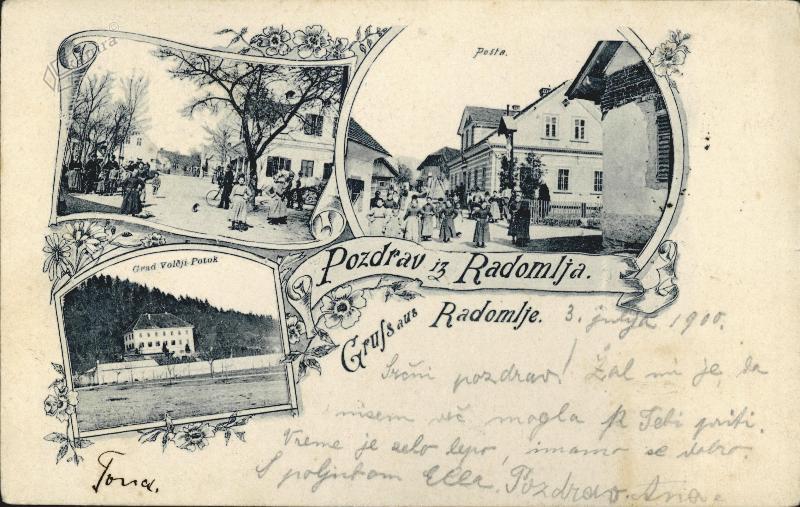 Pošta.
Grad Volčji Potok
Pozdrav iz Radomlja.
Gruss aus Radomlje.
3. julija 1900.
Srčni pozdrav! Žal mi je, da
nisem več mogla k Tebi priti.
Vreme je zelo lepo, imamo se dobro.
S poljubom Ella. Pozdrav. Ana.
Tona.